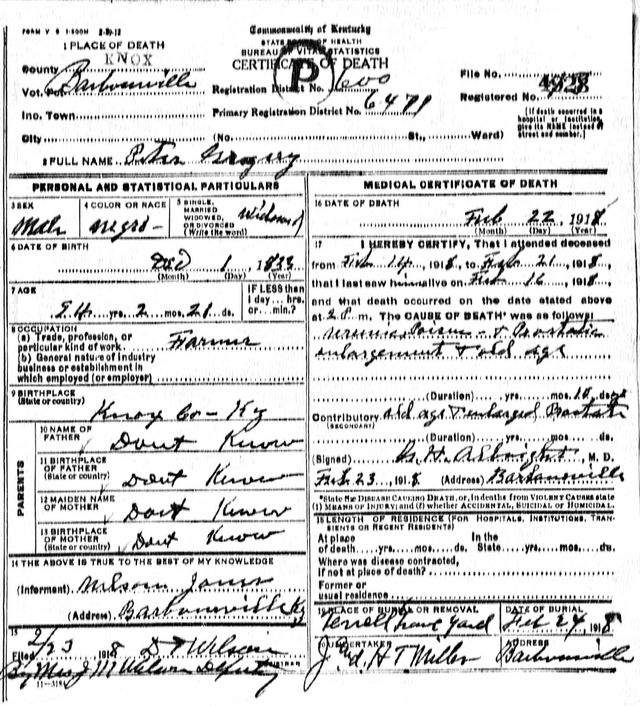 FORM V S 1-500M 2-20-12
Commonwealth of Kentucky
STATE BOARD OF HEALTH
BUREAU OF VITAL STATISTICS
CERTIFICATE OF DEATH
1 PLACE OF DEATH
KNOX
County
Vot. Pct. Barbourville
Registration District No. 600
File No. 4928
Registered No.
Ino. Town
Primary Registration District No. 6471
City (No. St., Ward)
[If death occurred in a hospital or institution, give its NAME instead of street and number.]
2 FULL NAME Peter Gregory
PERSONAL AND STATISTICAL PARTICULARS
3 SEX
Male
4 COLOR OR RACE
negro
5 SINGLE, MARRIED WIDOWED, OR DIVORCED (Write the word)
Widowed
6 DATE OF BIRTH
Dec 1, 1833
(Month) (Day) (Year)
7 AGE
84 yrs. 2 mos. 21 ds.
IF LESS than 1 day... hrs. or... min.?
8 OCCUPATION
(a) Trade, profession, or particular kind of work Farmer
(b) General nature of industry business or establishment in which employed (or employer)
9 BIRTHPLACE
(State or country)
Knox Co - Ky
PARENTS
10 NAME OF FATHER
Dont Know
11 BIRTHPLACE OF FATHER (State or country)
Dont Know
12 MAIDEN NAME OF MOTHER
Dont Know
13 BIRTHPLACE OF MOTHER (State or country)
Dont Know
14 THE ABOVE IS TRUE TO THE BEST OF MY KNOWLEDGE
(Informent) Nelson Jones
(Address) Barbourville Ky
15
Filed 2/23 1918 D T Wilson
REGISTRAR
By Mrs J M Wilson Deputy
MEDICAL CERTIFICATE OF DEATH
16 DATE OF DEATH
Feb 22, 1918
(Month) (Day) (Year)
17 I HEREBY CERTIFY, That I attended deceased
from Feb 14, 1918, to Feb 21, 1918,
that I last saw him alive on Feb 16, 1918
and that death occurred on the date stated above
at 2 P. m. The CAUSE OF DEATH* was as follows:
uremic Poison - & Prostatic
enlargement & old age
(Duration) yrs. mos. 10 days
Contributory old age & enlarged Prostate
(SECONDARY)
(Duration) yrs. mos. ds.
(Signed) G. H. Albright, M. D.
Feb 23, 1918 (Address) Barbourville
*State the DISEASE CAUSING DEATH, or, in deaths from VIOLENT CAUSES state
(1) MEANS OF INJURY; and (2) whether ACCIDENTAL, SUICIDAL or HOMICIDAL.
18 LENGTH OF RESIDENCE (FOR HOSPITALS, INSTITUTIONS, TRANSIENTS OR RECENT RESIDENTS)
At place of death yrs. mos. ds. In the State yrs. mos. ds.
Where was disease contracted,
If not at place of death?
Former or
usual residence
19 PLACE OF BURIAL OR REMOVAL
Terrell Grave Yard
DATE OF BURIAL
Feb 24, 1918
20 UNDERTAKER
H T Miller
ADDRESS
Barbourville